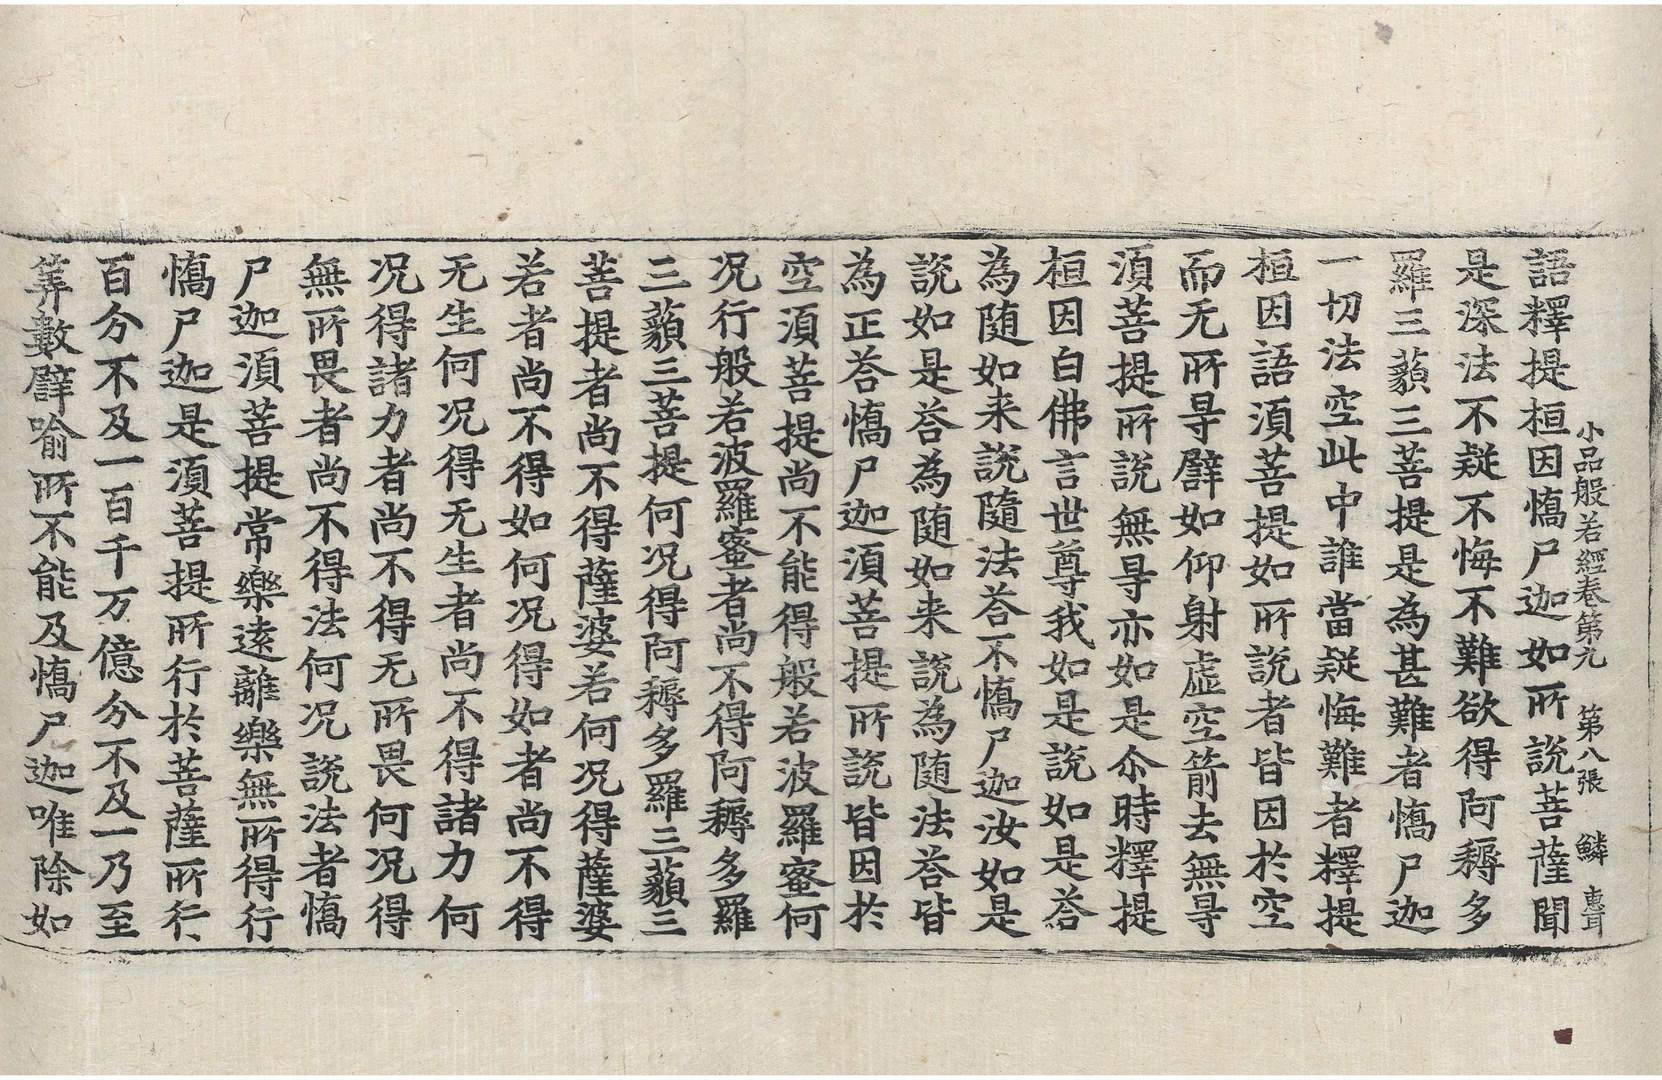 小品般若經卷第九　第八張　鱗　惠耳
語釋提桓因憍尸迦如所說菩薩聞
是深法不疑不悔不難欲得阿耨多
羅三藐三菩提是為甚難者憍尸迦
一切法空此中誰當疑悔難者釋提
桓因語湏菩提如所說者皆因於空
而无所㝵譬如仰射虛空箭去無㝵
湏菩提所說無㝵亦如是尒時釋提
桓因白佛言世尊我如是說如是荅
為隨如来說隨法荅不憍尸迦汝如是
說如是荅為隨如来說為隨法荅皆
為正荅憍尸迦湏菩提所說皆因於
空湏菩提尚不能得般若波羅蜜何
况行般若波羅蜜者尚不得阿耨多羅
三藐三菩提何况得阿耨多羅三藐三
菩提者尚不得薩婆若何况得薩婆
若者尚不得如何况得如者尚不得
无生何况得无生者尚不得諸力何
况得諸力者尚不得无所畏何况得
無所畏者尚不得法何况說法者憍
尸迦湏菩提常樂遠離樂無所得行
憍尸迦是湏菩提所行於菩薩所行
百分不及一百千万億分不及一乃至
筭數譬喻所不能及憍尸迦唯除如